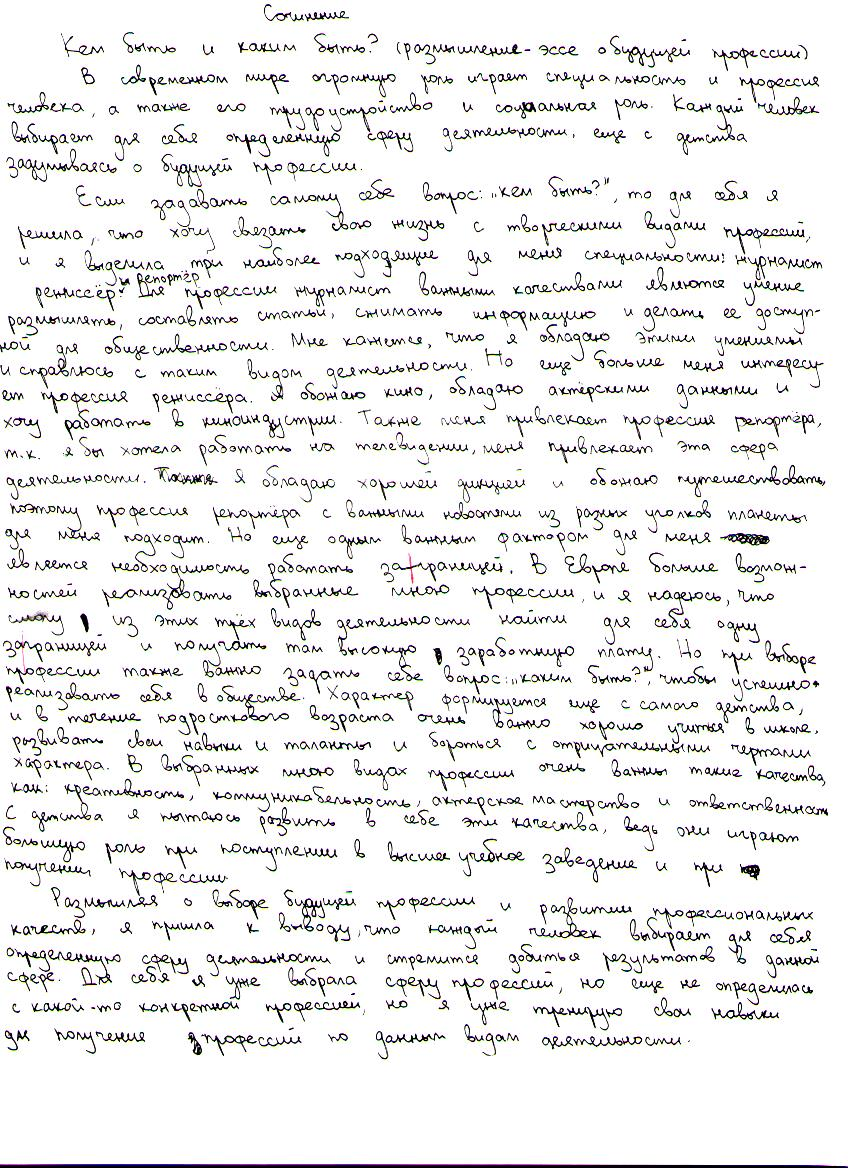 Сочинение
Кем быть и каким быть? (размышление-эссе о будущей профессии)
В современном мире огромную роль играет специальность и профессия
человека, а также его трудоустройство и социальная роль. Каждый человек
выбирает для себя определенную сферу деятельности, еще с детства
задумываясь о будущей профессии.
Если задавать самому себе вопрос: „кем быть?", то для себя я
решила, что хочу связать свою жизнь с творческими видами профессий,
и я выделила три наиболее подходящие для меня специальности: журналист
режиссёр и репортёр. Для профессии журналист важными качествами являются умение
размышлять, составлять статьи, снимать информацию и делать ее доступ-
ной для общественности. Мне кажется, что я обладаю этими умениями
и справлюсь с таким видом деятельности. Но еще больше меня интересу-
ет профессия режиссёра. Я обожаю кино, обладаю актёрскими данными и
хочу работать в киноиндустрии. Также меня привлекает профессия репортёра,
т.к. я бы хотела работать на телевидении, меня привлекает эта сфера
деятельности. Я обладаю хорошей дикцией и обожаю путешествовать,
поэтому профессия репортёра с важными новостями из разных уголков планеты
для меня подходит. Но еще одним важным фактором для меня
является необходимость работать заграницей. В Европе больше возмож-
ностей реализовать выбранные мною профессии, и я надеюсь, что
смогу из этих трёх видов деятельности найти для себя одну
заграницей и получать там высокую заработную плату. Но при выборе
профессии также важно задать себе вопрос: „каким быть?", чтобы успешно
реализовать себя в обществе. Характер формируется еще с самого детства,
и в течение подросткового возраста очень важно хорошо учиться в школе,
развивать свои навыки и таланты и бороться с отрицательными чертами
характера. В выбранных мною видах профессии очень важны такие качества,
как: креативность, коммуникабельность, актерское мастерство и ответственность
С детства я пытаюсь развить в себе эти качества, ведь они играют
большую роль при поступлении в высшее учебное заведение и при
получении профессии.
Размышляя о выборе будущей профессии и развитии профессиональных
качеств, я пришла к выводу, что каждый человек выбирает для себя
определенную сферу деятельности и стремится добиться результатов в данной
сфере. Для себя я уже выбрала сферу профессий, но еще не определилась
с какой-то конкретной профессией, но я уже тренирую свои навыки
для получение профессий по данным видам деятельности.